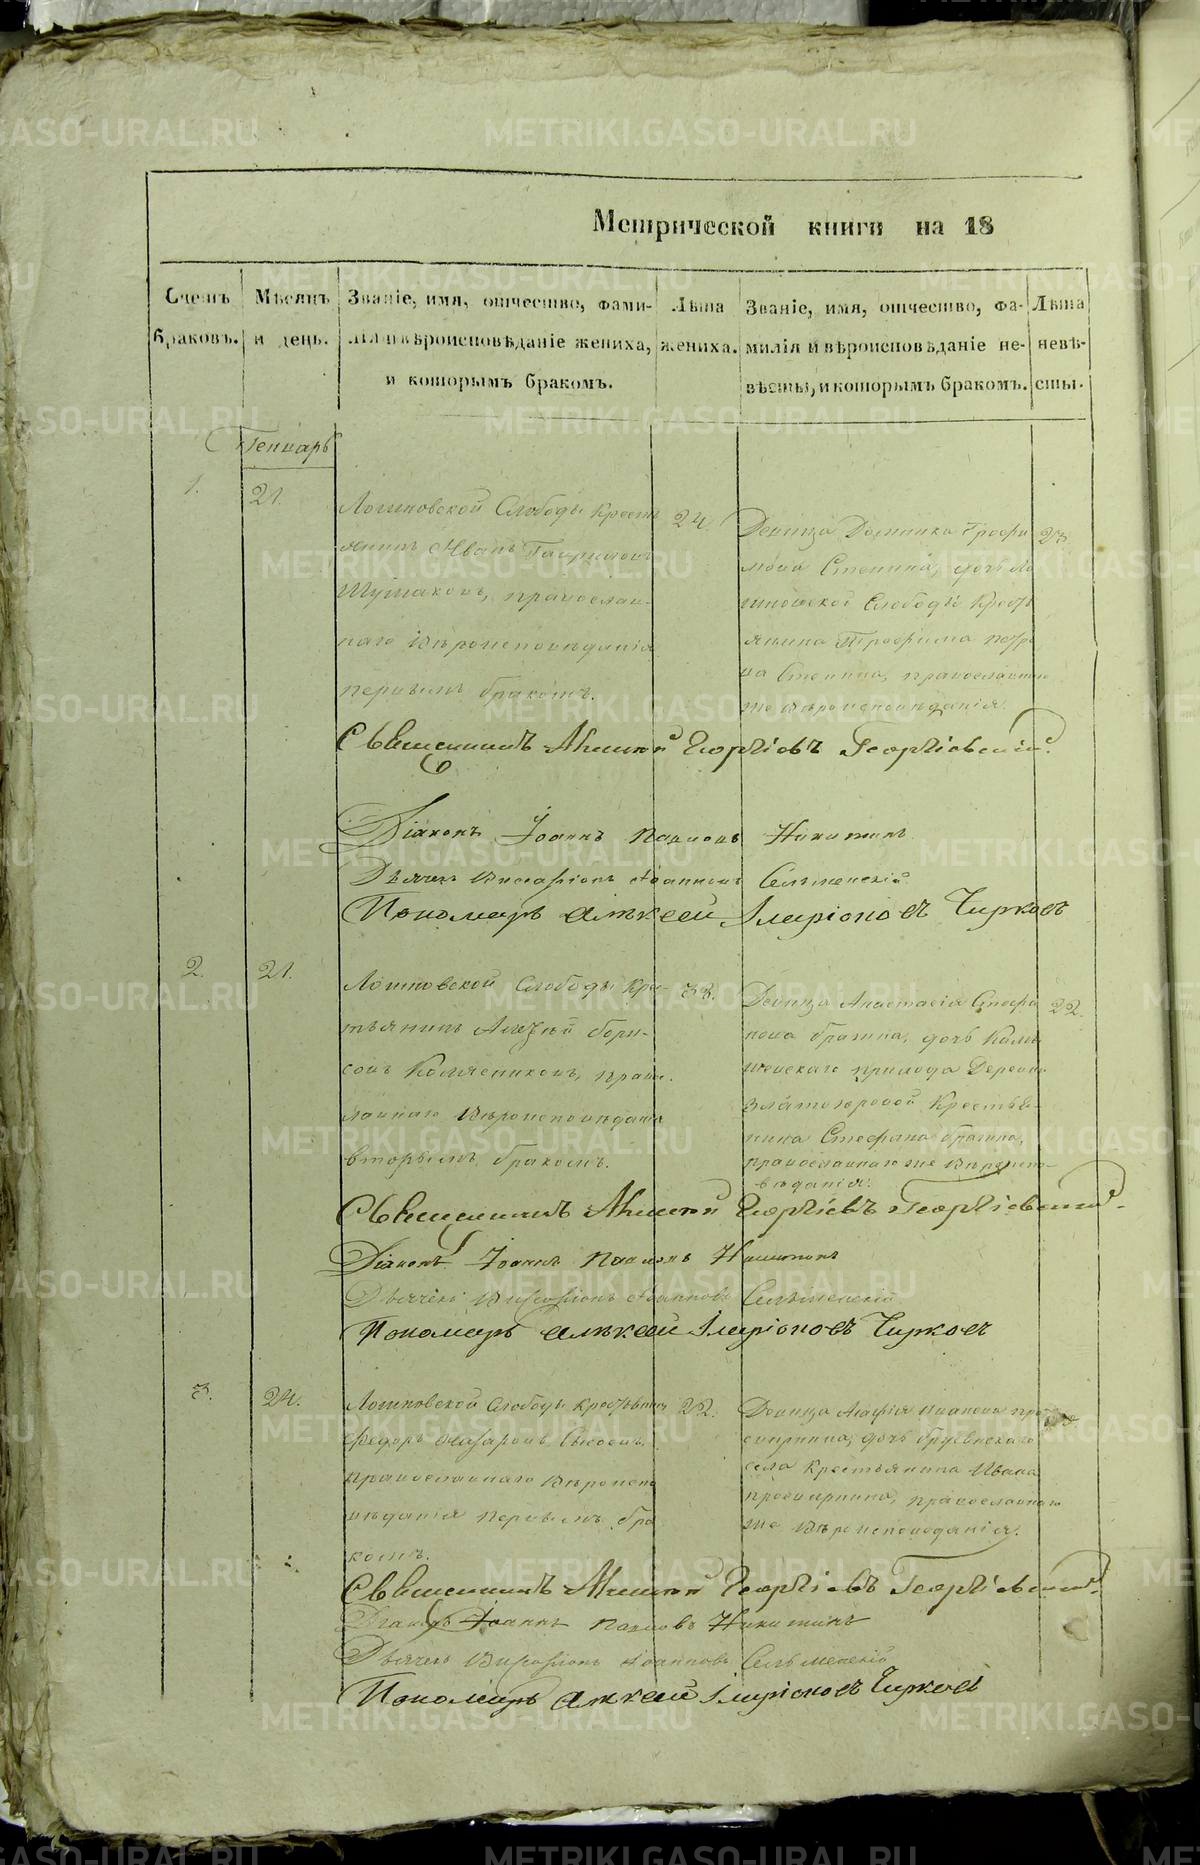 METRIKI.GASO-URAL.RU
Метрической книги на 18
Счетъ браковъ.
Мѣсяцъ и день.
Званіе, имя, отчество, фами-
лія и вѣроисповѣданіе жениха,
и которымъ бракомъ.
Лѣта жениха.
Званіе, имя, отчество, фа-
милія и вѣроисповѣданіе не-
вѣсты, и которымъ бракомъ.
Лѣта невѣ-
сты.
Генварь
1.
21.
Логиновской Слободы Кресть
янинъ Иванъ Гавриловъ
Шумаковъ, православ-
наго вѣроисповѣданія
первымъ бракомъ.
24.
Девица Домника Трофи
мова Степина, дочь Ло
гиновской Слободы Кресть
янина Трофима Петро
ва Степина, православнаго
же вѣроисповѣданія.
Священникъ Георгіевъ Георгіевскій.
Діаконъ Іоаннъ Павловъ Никитинъ
Дьячекъ Виссаріонъ Іоанновъ Сельменскій
Пономарь Алѣксей Іларіоновъ Чирковъ
2.
21.
Логиновской Слободы Кре-
стьянинъ Андрей Бори-
совъ Колясниковъ, право
славнаго вѣроисповѣданія
вторымъ бракомъ.
33.
Девица Анастасія Стефа
нова Брагина, дочь
прихода Деревни
Златогоровой Крестья-
нина Стефана Брагина,
православнаго же вѣроиспо-
вѣданія.
22.
Священникъ Георгіевъ Георгіевскій.
Діаконъ Іоаннъ Павловъ Никитинъ
Дьячекъ Виссаріонъ Іоанновъ Сельменскій
Пономарь Алѣксей Іларіоновъ Чирковъ
3.
24.
Логиновской Слободы Крестьянинъ
Федоръ Назаровъ Сысоевъ,
православнаго вѣроиспо
вѣданія первымъ бра
комъ.
22.
Девица Агафія Иванова Про
свирнина, дочь
села Крестьянина Ивана
Просвирнина, православнаго
же вѣроисповѣданія.
Священникъ Георгіевъ Георгіевскій.
Діаконъ Іоаннъ Павловъ Никитинъ
Дьячекъ Виссаріонъ Іоанновъ Сельменскій
Пономарь Алѣксей Іларіоновъ Чирковъ